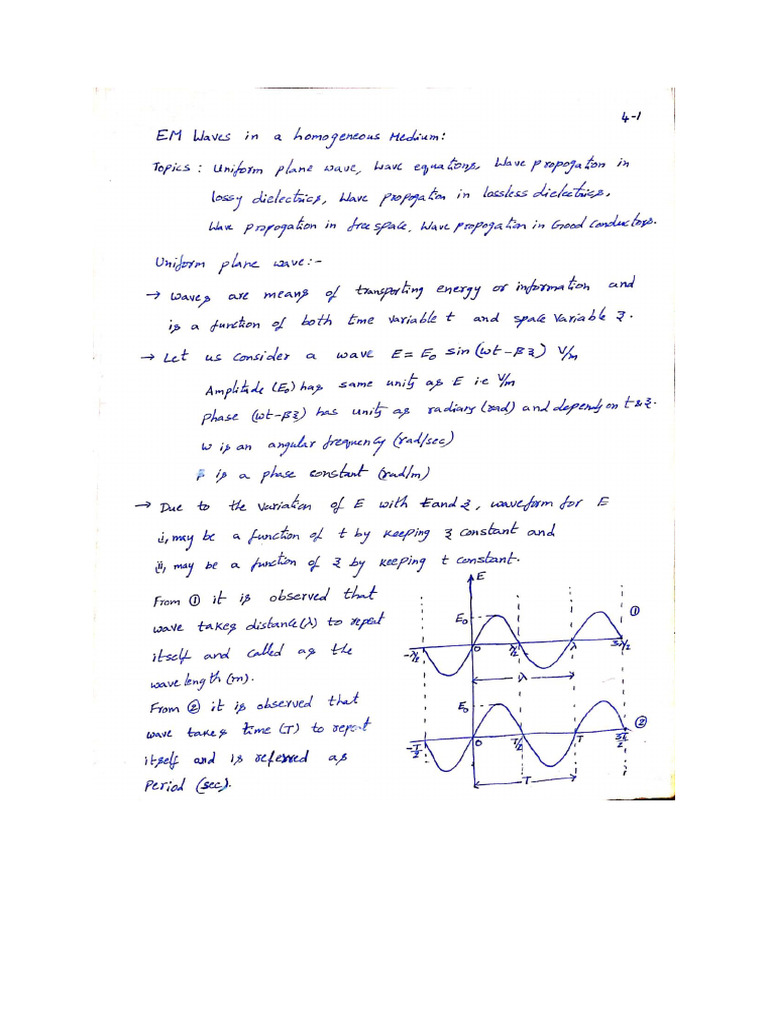 4-1
EM Waves in a homogeneous Medium:
Topics: Uniform plane wave, Wave equations, Wave propogation in
lossy dielectrics, Wave propogation in lossless dielectrics,
Wave propogation in free space, Wave propogation in Good Conductors.
Uniform plane wave:-
→ Waves are means of transporting energy or information and
is a function of both time variable t and space variable z.
→ Let us consider a wave E = E₀ sin(ωt-βz) V/m
Amplitude (E₀) has same units as E i.e V/m
phase (ωt-βz) has units as radians (rad) and depends on t & z.
ω is an angular frequency (rad/sec)
β is a phase constant (rad/m)
→ Due to the variation of E with t and z, waveform for E
i, may be a function of t by keeping z constant and
ii, may be a function of z by keeping t constant.
From ① it is observed that
wave takes distance(λ) to repeat
itself and called as the
wavelength (m).
From ② it is observed that
wave takes time (T) to repeat
itself and is referred as
Period (sec).
E
E₀
①
-λ/2 0 λ/2 λ 3λ/2
λ
E₀
②
-T/2 0 T/2 T 3T/2
T